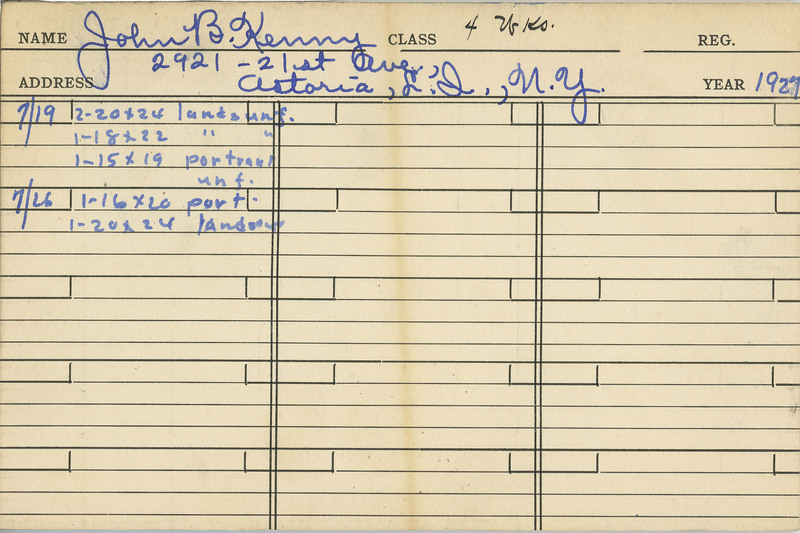 NAME John B. Kenny CLASS 4 Wks. REG.
2921 - 21st Ave.,
ADDRESS Astoria, L.I., N.Y. YEAR 1927
7/19 2-20x24 lands unf.
1-18x22 " "
1-15x19 portrait
unf.
7/26 1-16x20 port.
1-20x24 landscape